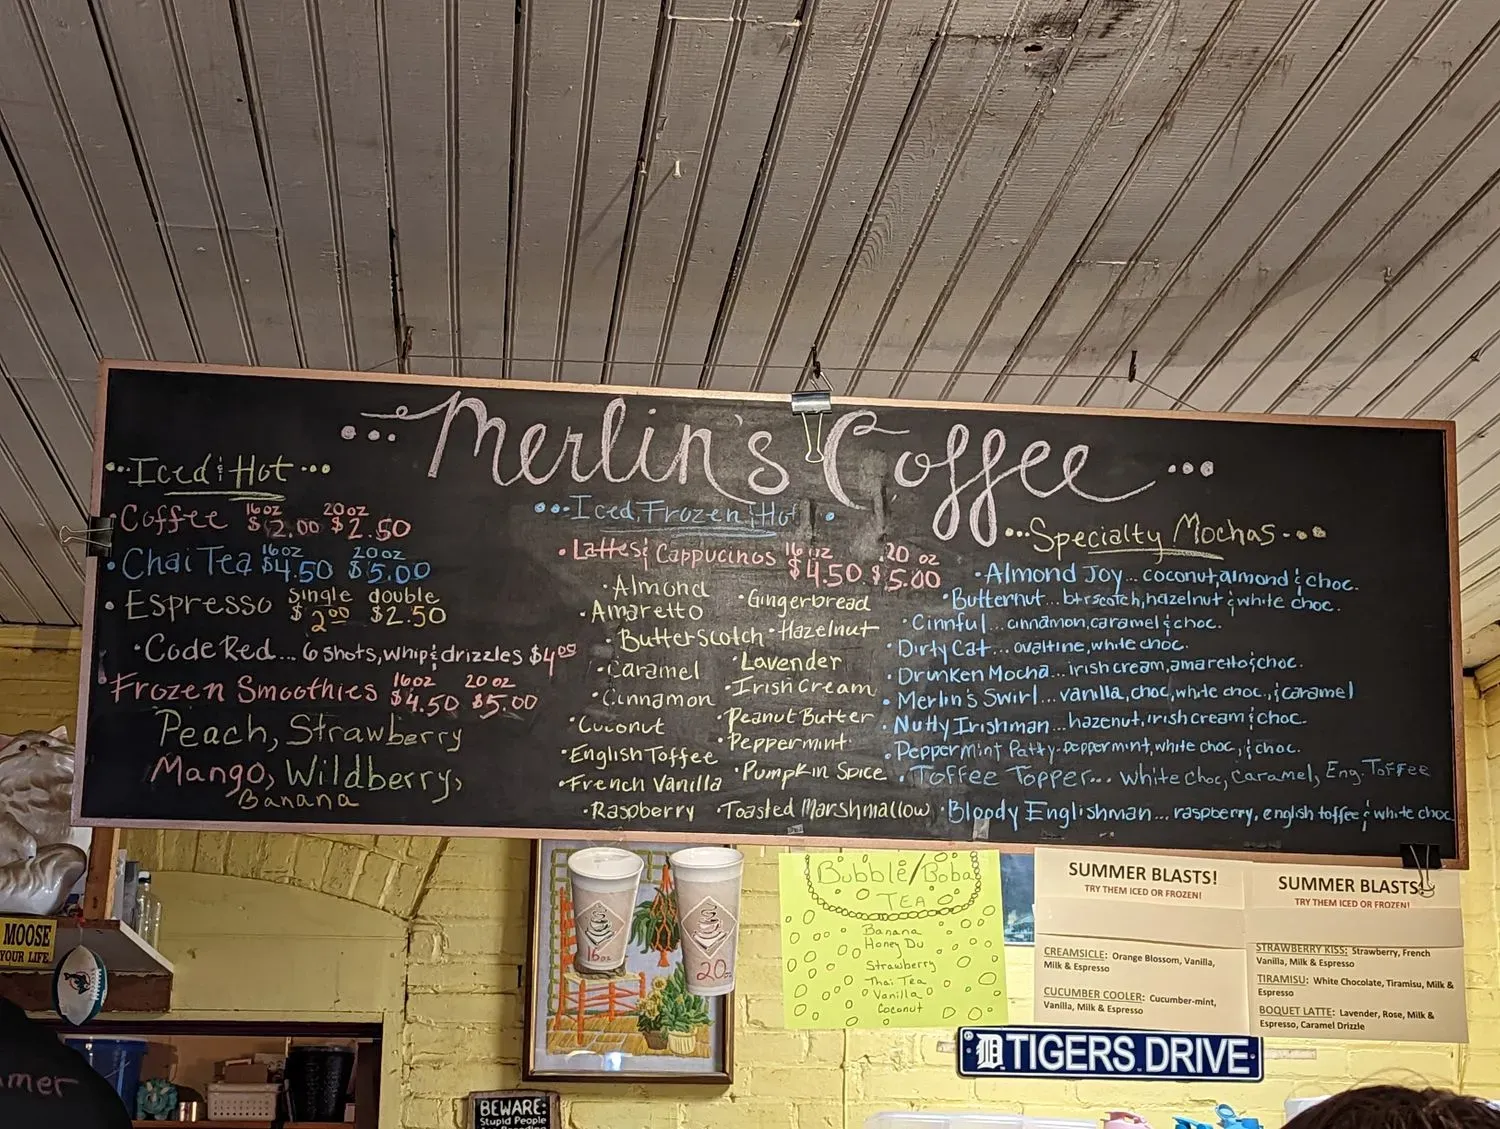 Merlin's Coffee
Iced & Hot
Coffee 16oz $2.00 20oz $2.50
Chai Tea 16oz $4.50 20oz $5.00
Espresso single $2.00 double $2.50
Code Red... 6 shots, whip & drizzles $4.00
Frozen Smoothies 16oz $4.50 20oz $5.00
Peach, Strawberry
Mango, Wildberry,
Banana
Iced, Frozen & Hot
Lattes & Cappucinos 16oz $4.50 20 oz $5.00
Almond
Amaretto
Butterscotch
Caramel
Cinnamon
Coconut
English Toffee
French Vanilla
Raspberry
Gingerbread
Hazelnut
Lavender
Irish Cream
Peanut Butter
Peppermint
Pumpkin Spice
Toasted Marshmallow
Specialty Mochas
Almond Joy... coconut, almond & choc.
Butternut... btrscotch, hazelnut & white choc.
Cinnful... cinnamon, caramel & choc.
Dirty Cat... ovaltine, white choc.
Drunken Mocha... irish cream, amaretto & choc.
Merlin's Swirl... vanilla, choc, white choc., & caramel
Nutty Irishman... hazenut, irish cream & choc.
Peppermint Patty- peppermint, white choc, & choc.
Toffee Topper... white choc, caramel, Eng. Toffee
Bloody Englishman... raspberry, english toffee & white choc
16oz
20oz
Bubble/Boba
TEA
Banana
Honey Du
Strawberry
Thai Tea
Vanilla
Coconut
SUMMER BLASTS!
TRY THEM ICED OR FROZEN!
CREAMSICLE: Orange Blossom, Vanilla,
Milk & Espresso
CUCUMBER COOLER: Cucumber-mint,
Vanilla, Milk & Espresso
SUMMER BLASTS!
TRY THEM ICED OR FROZEN!
STRAWBERRY KISS: Strawberry, French
Vanilla, Milk & Espresso
TIRAMISU: White Chocolate, Tiramisu, Milk &
Espresso
BOQUET LATTE: Lavender, Rose, Milk &
Espresso, Caramel Drizzle
D TIGERS DRIVE
MOOSE
YOUR LIFE
mer
BEWARE:
Stupid People